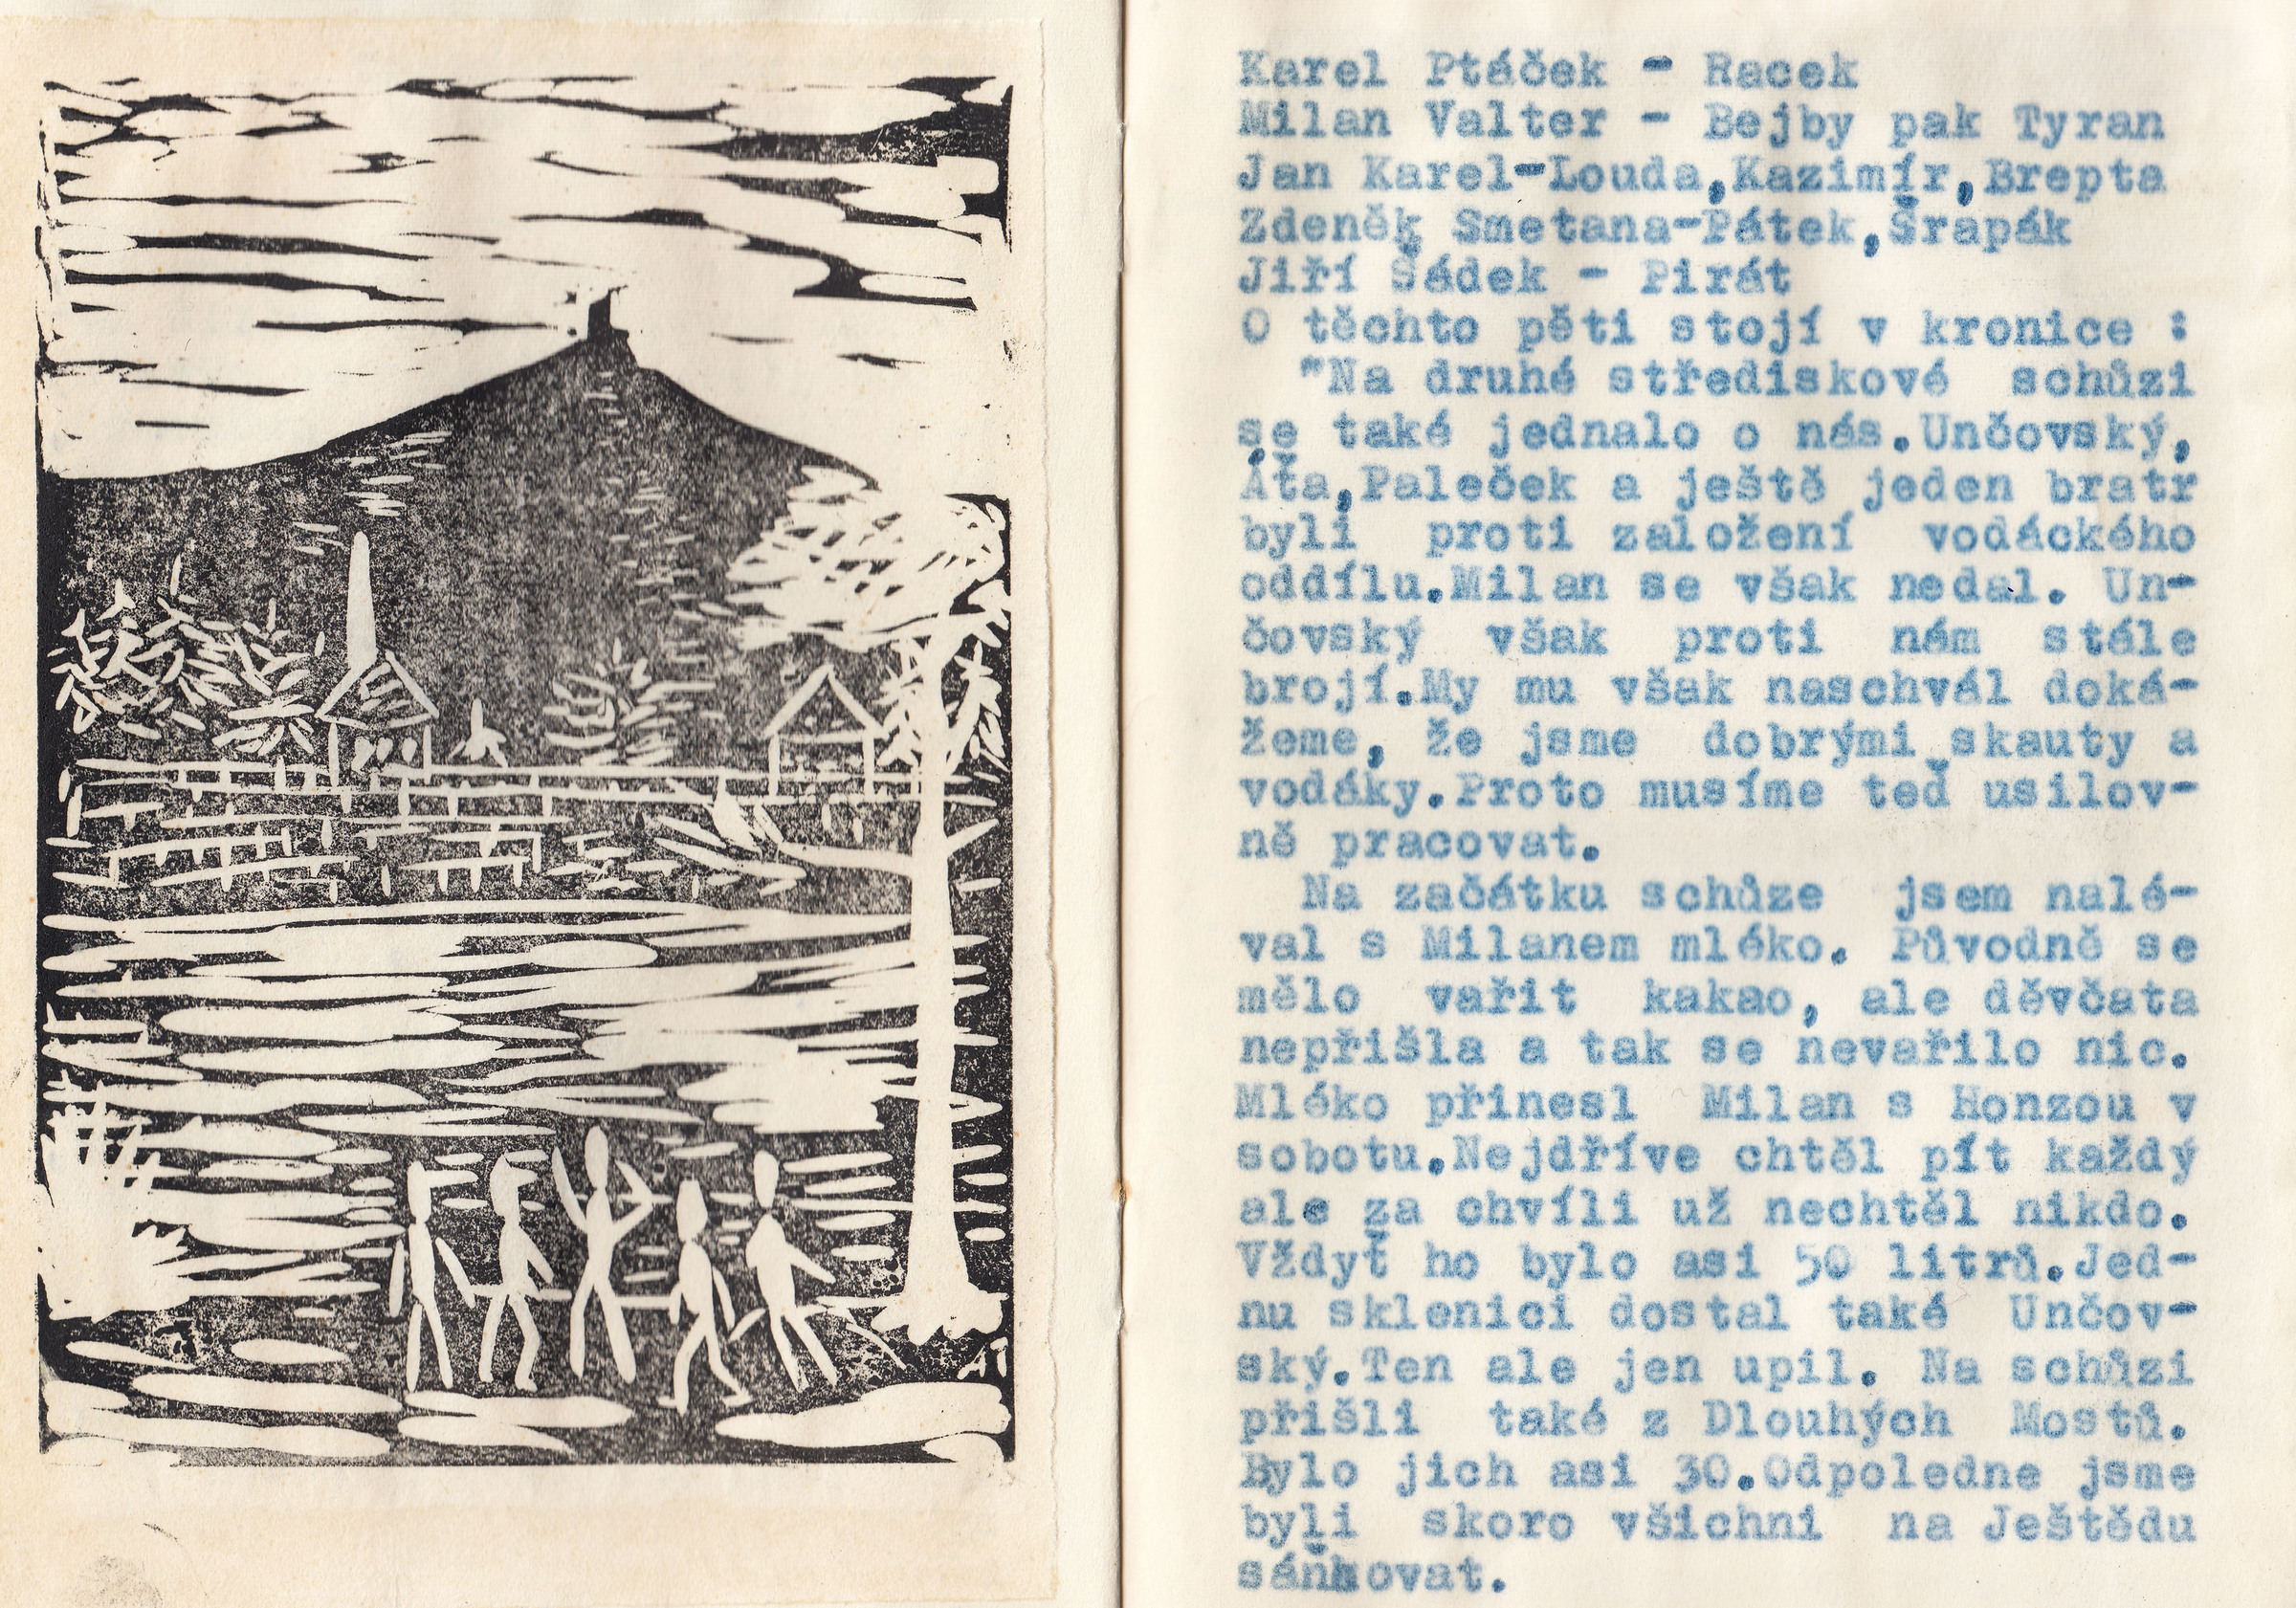 AT
Karel Ptáček - Racek
Milan Valter - Bejby pak Tyran
Jan Karel-Louda,Kazimír,Brepta
Zdeněk Smetana-Pátek,Šrapák
Jiří Šádek - Pirát
O těchto pěti stojí v kronice :
"Na druhé střediskové schůzi
se také jednalo o nás.Unčovský,
Áťa,Paleček a ještě jeden bratr
byli proti založení vodáckého
oddílu.Milan se však nedal. Un-
čovský však proti nám stále
brojí.My mu však naschvál doká-
žeme, že jsme dobrými skauty a
vodáky.Proto musíme teď usilov-
ně pracovat.
Na začátku schůze jsem nalé-
val s Milanem mléko. Původně se
mělo vařit kakao, ale děvčata
nepřišla a tak se nevařilo nic.
Mléko přinesl Milan s Honzou v
sobotu.Nejdříve chtěl pít každý
ale za chvíli už nechtěl nikdo.
Vždyť ho bylo asi 50 litrů.Jed-
nu sklenici dostal také Unčov-
ský.Ten ale jen upil. Na schůzi
přišli také z Dlouhých Mostů.
Bylo jich asi 30.Odpoledne jsme
byli skoro všichni na Ještědu
sáňkovat.